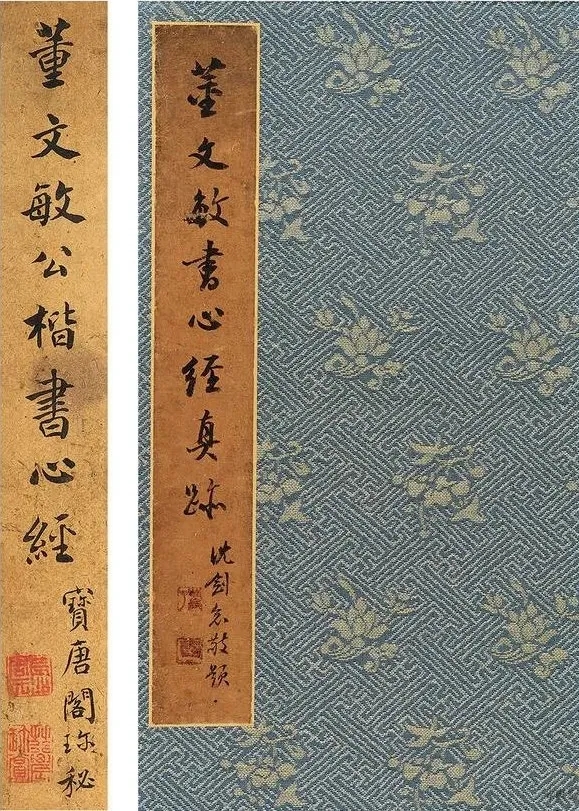 董文敏公楷書心經
寶唐閣珎秘
董文敏書心経真跡
沈劍知敬題